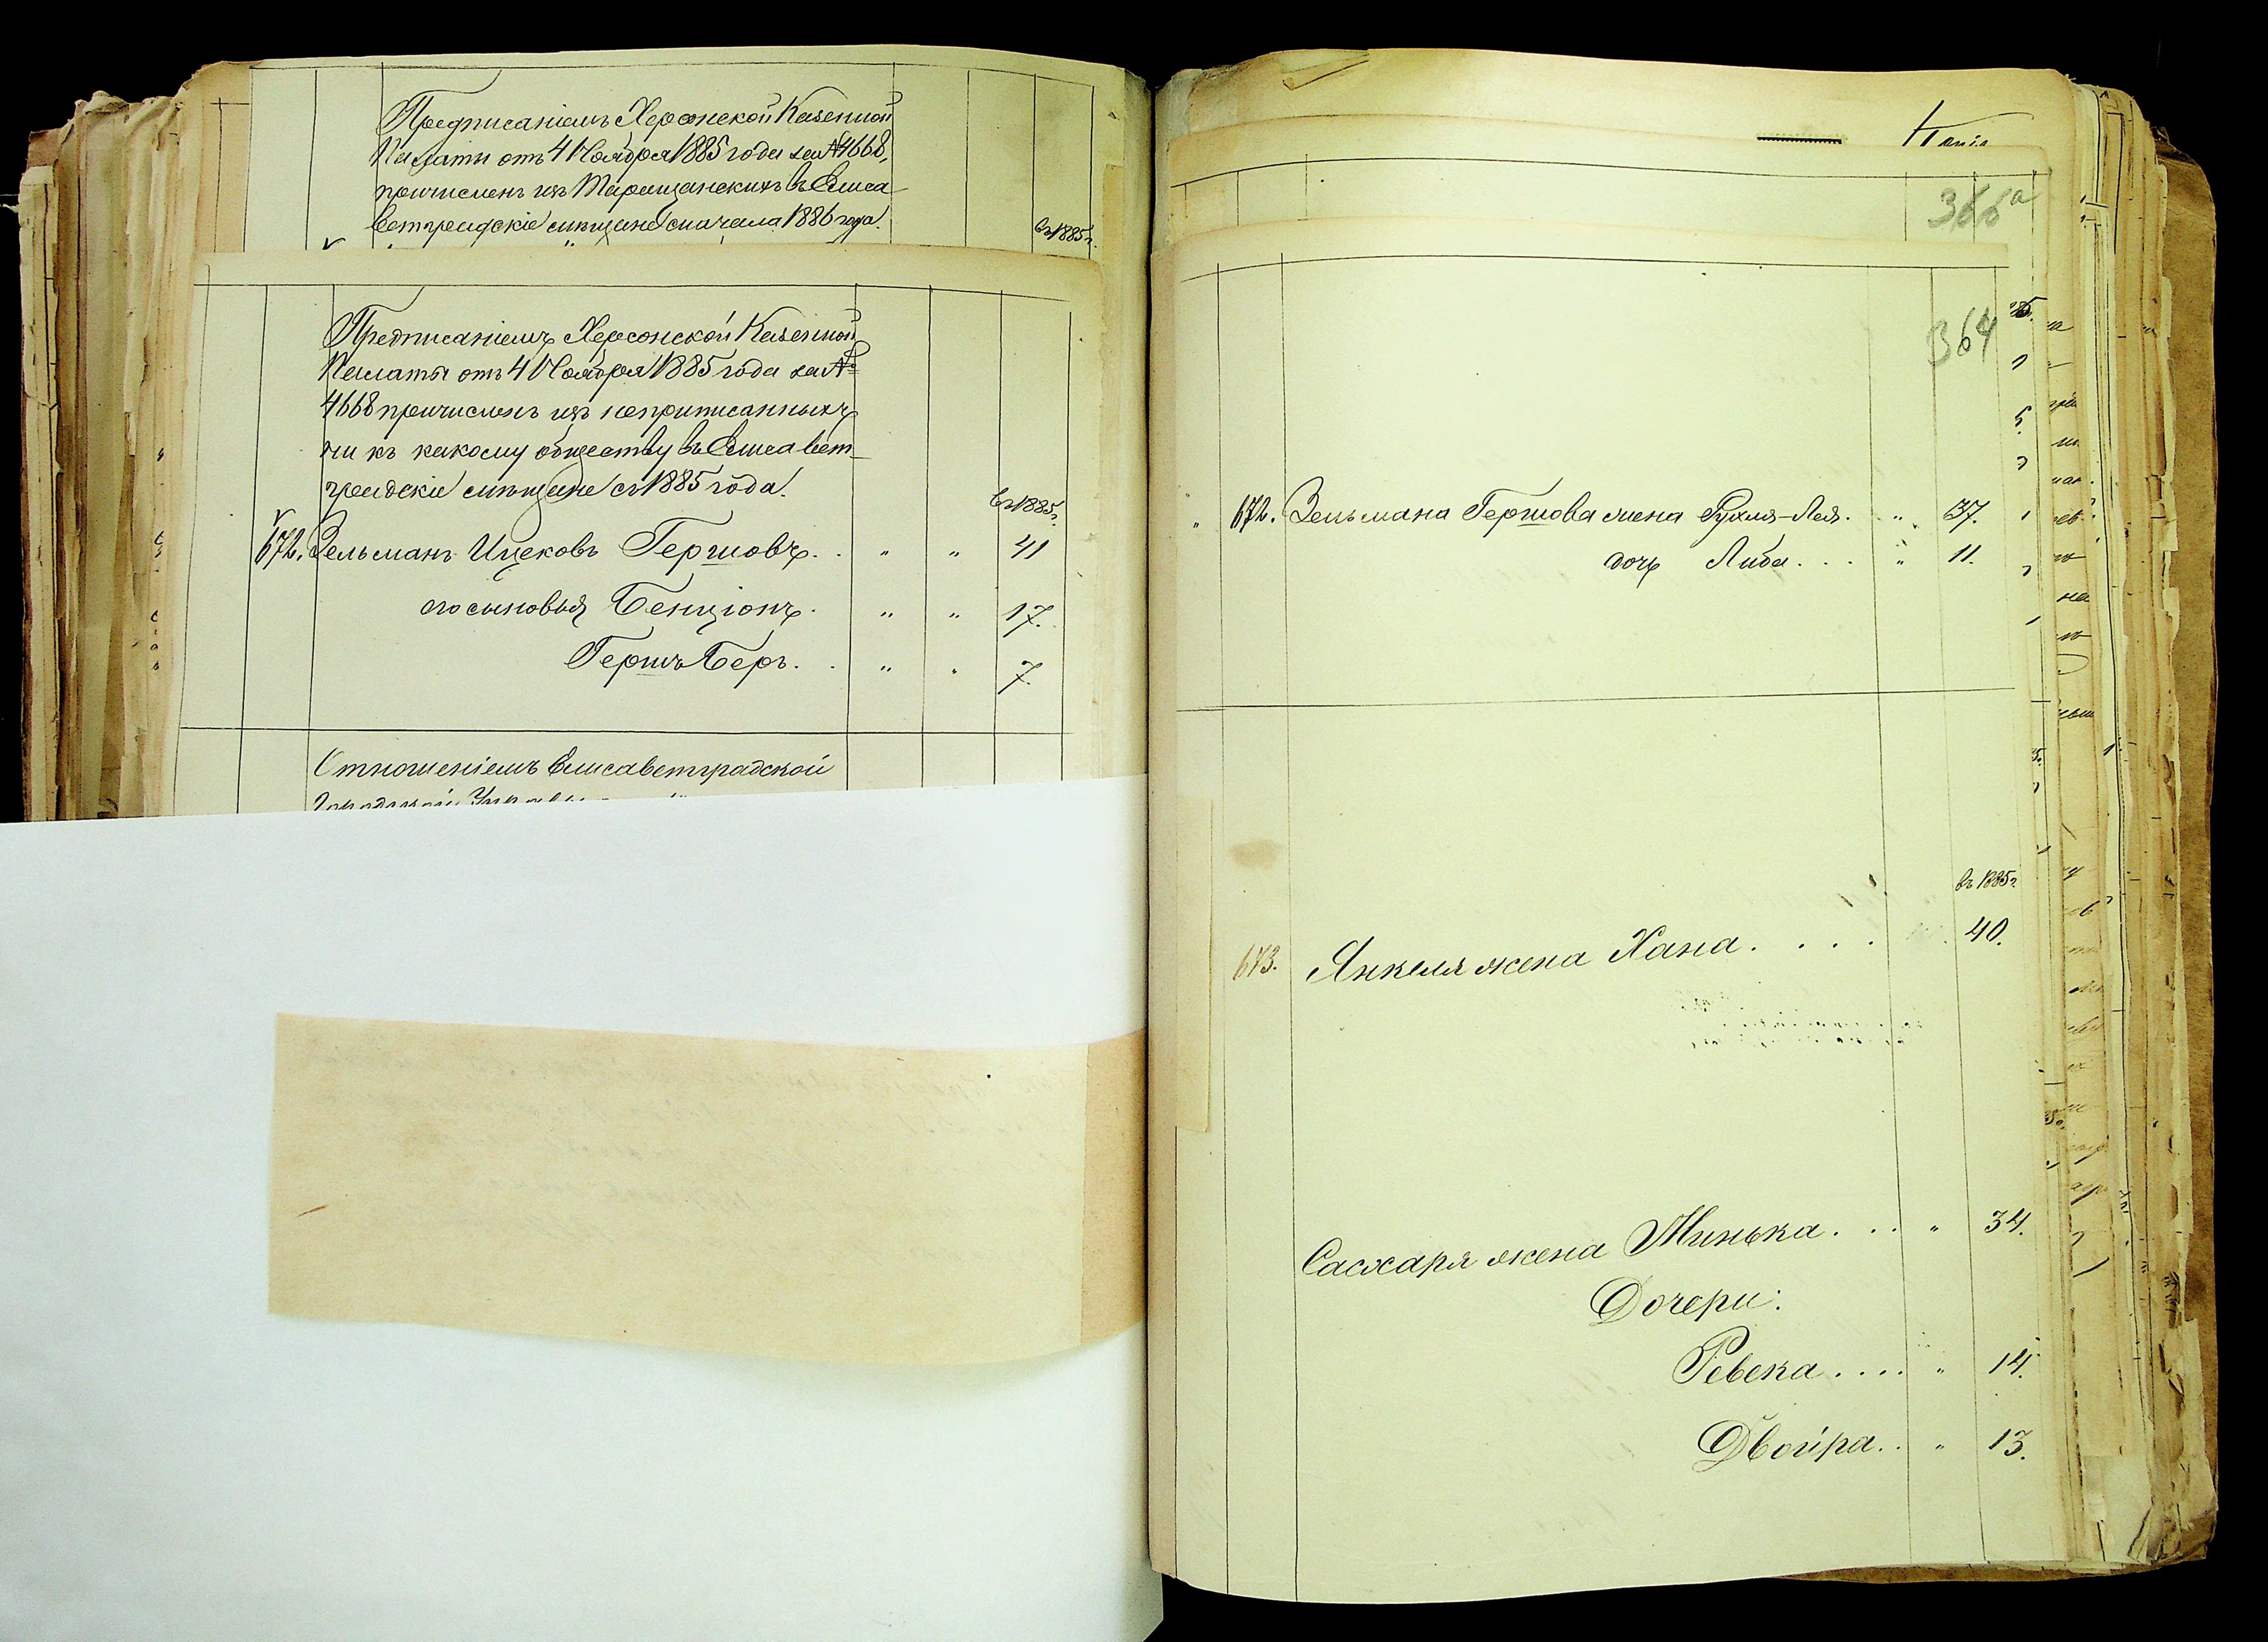 Предписаніемъ Херсонской Казенной
Палаты отъ 4 Ноября 1885 года за № 4668,
причисленъ изъ Таращанскихъ въ Елиса-
ветградскіе мѣщане сначала 1886 года.
въ 1885 г.
Предписаніемъ Херсонской Казенной
Палаты отъ 4 Ноября 1885 года за №
4668 причисленъ изъ неприписанныхъ
ни къ какому обществу въ Елисавет-
градскіе мѣщане съ 1885 года.
въ 1885 г.
672. Зельманъ Ицковъ Гершовъ. . " " 41
его сыновья Бенціонъ. " " 17.
Гершъ Беръ. . " " 7.
Отношеніемъ Елисаветградской
Городской
366а
364
" 672. Зельмана Гершова жена Рухля-Лея. " 37.
дочь Либа. . . " 11.
въ 1885 г.
673. Янкеля жена Хана. . . . 40.
Сахаря жена Минька. . . " 34.
Дочери:
Ревека. . . . " 14.
Двойра. . " 13.